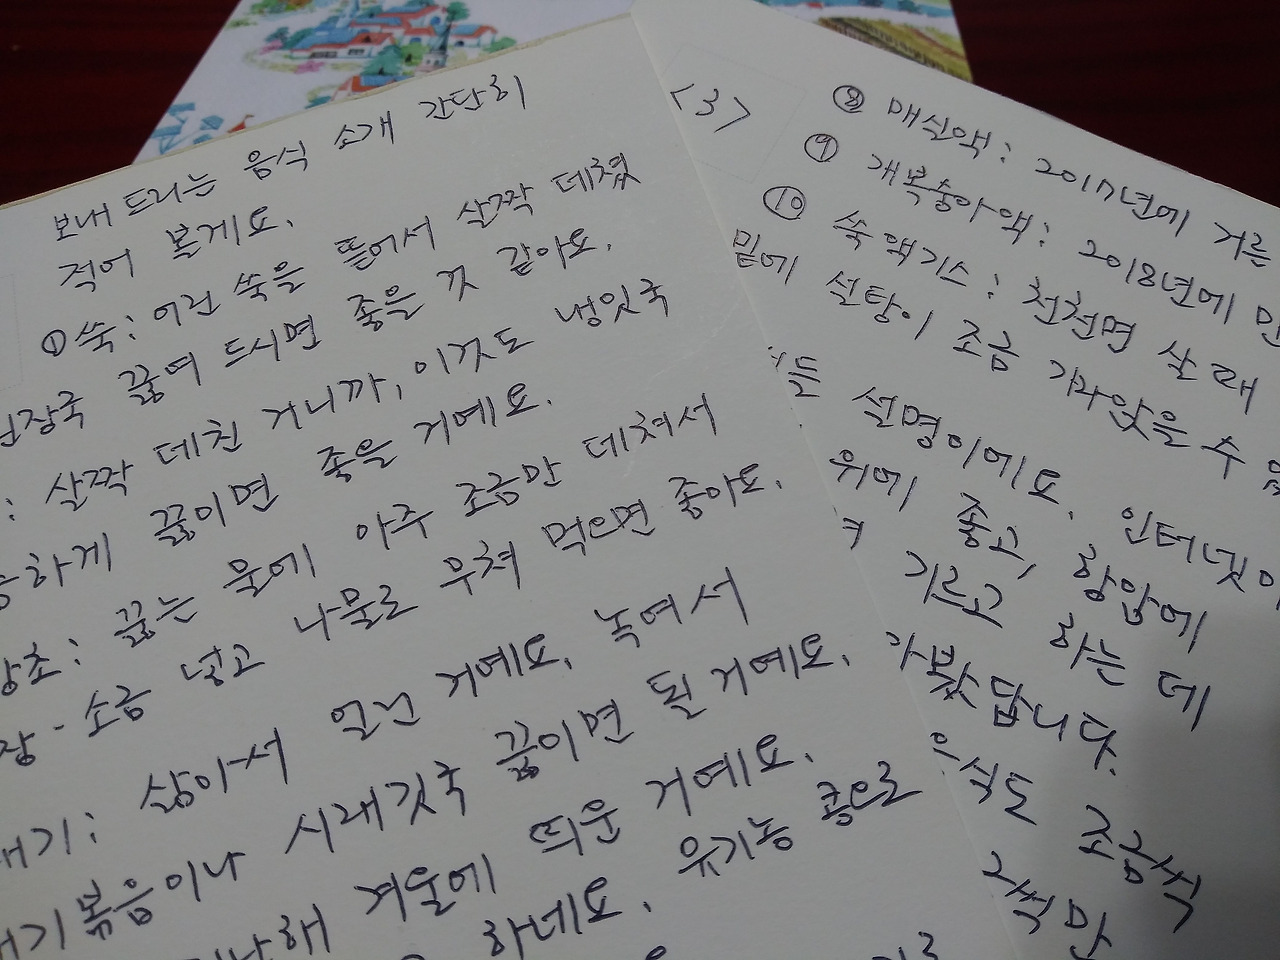 보내 드리는 음식 소개 간단히
적어 볼게요.
① 쑥: 어린 쑥을 뜯어서 살짝 데쳤
된장국 끓여 드시면 좋을 것 같아요.
: 살짝 데친 거니까, 이것도 냉잇국
하게 끓이면 좋을 거예요.
초: 끓는 물에 아주 조금만 데쳐서
장·소금 넣고 나물로 무쳐 먹으면 좋아요.
기: 삶아서 얼린 거예요. 녹여서
기볶음이나 시래깃국 끓이면 될 거예요.
난해 겨울에 띄운 거예요.
하네요. 유기농 콩으로
<3>
⑧ 매실액: 2017년에 거른
⑨ 개복숭아액: 2018년에 만
⑩ 쑥 액기스: 천천면 쑥 래
밑에 설탕이 조금 가라앉을 수 있
들 설명이에요. 인터넷이
위에 좋고, 항암에
기르고 하는 데
가봤답니다.
음식도 조금씩